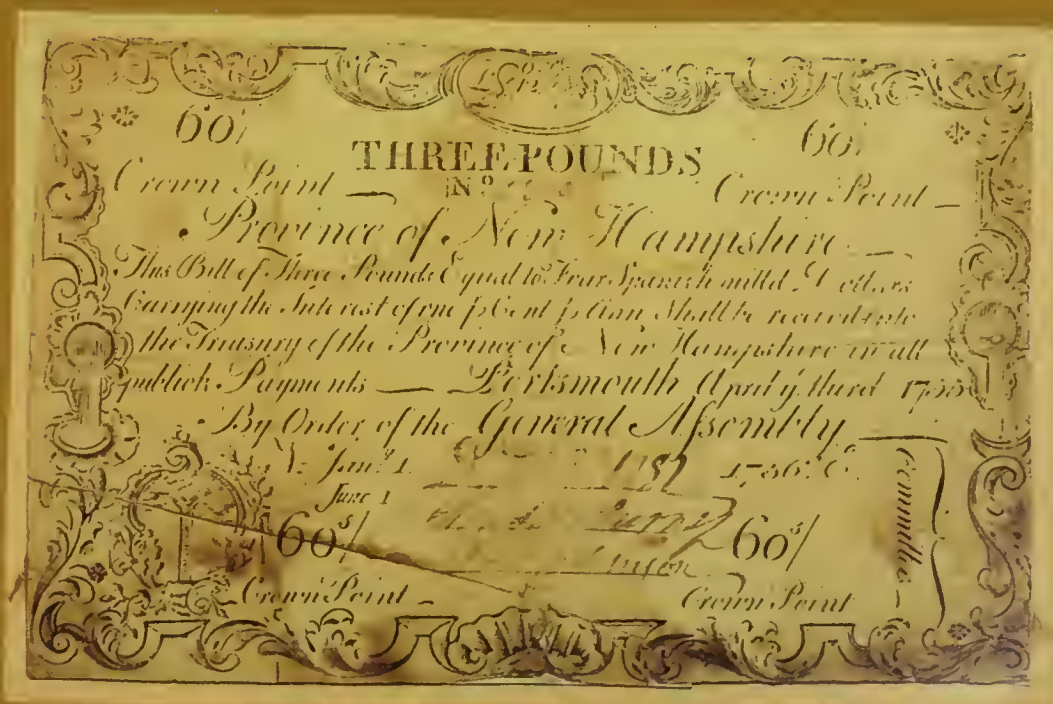 60/ 60/
THREE POUNDS
Crown Point — No Crown Point —
Province of New Hampshire —
This Bill of Three Pounds Equal to Four Spanish milld Dollars
Carrying the Interest of one p Cent p Ann Shall be receivd into
the Treasury of the Province of New Hampshire in all
publick Payments — Portsmouth April ye third 1755
By Order of the General Assembly
Janr 1 1756
June 1 Committee
60s/ 60s/
Crown Point — Crown Point